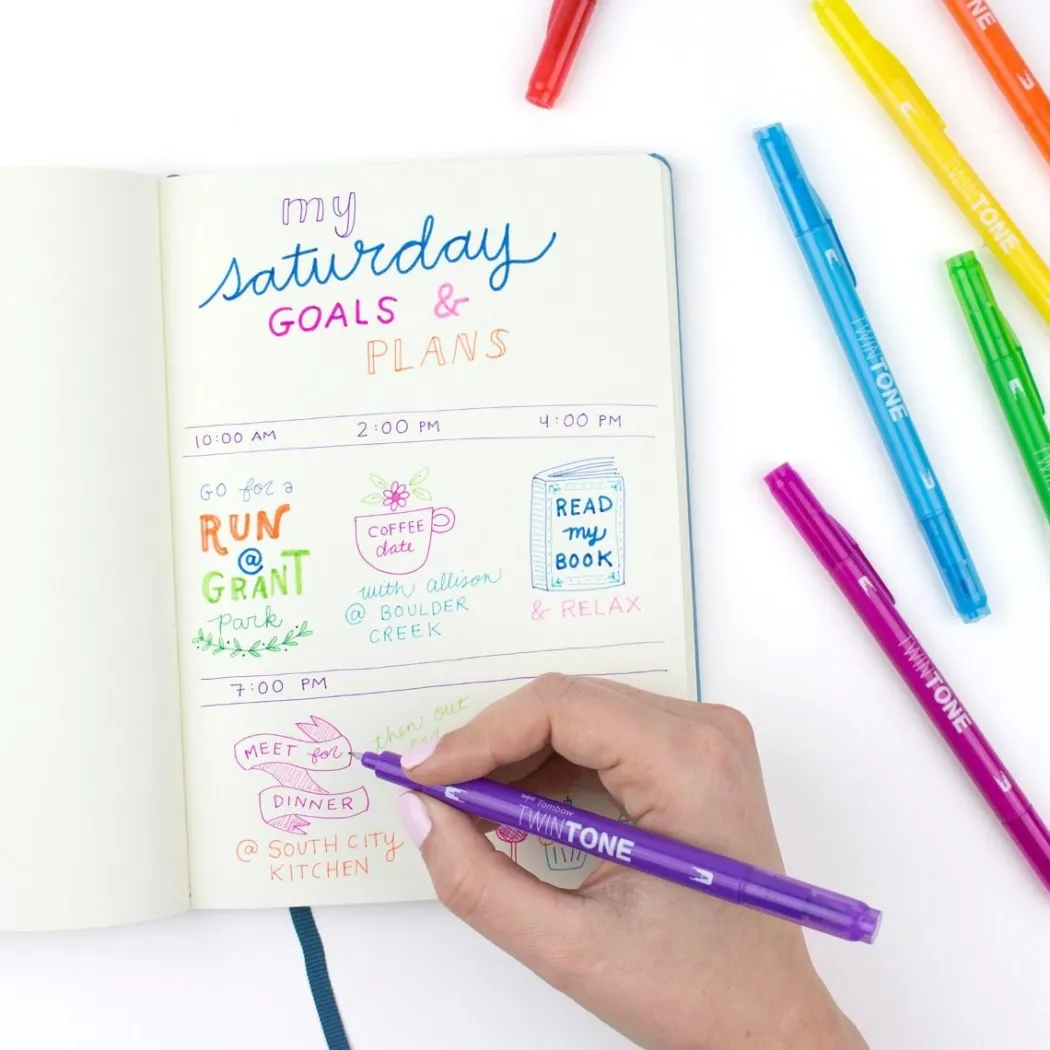 my
saturday
GOALS &
PLANS
10:00 AM
2:00 PM
4:00 PM
GO for a
RUN
@
GRANT
park
COFFEE
date
with allison
@ BOULDER
CREEK
READ
my
BOOK
& RELAX
7:00 PM
MEET for
DINNER
@ SOUTH CITY
KITCHEN
then out
Tombow
TWINTONE
TWINTONE
TWINTONE
TWINTONE